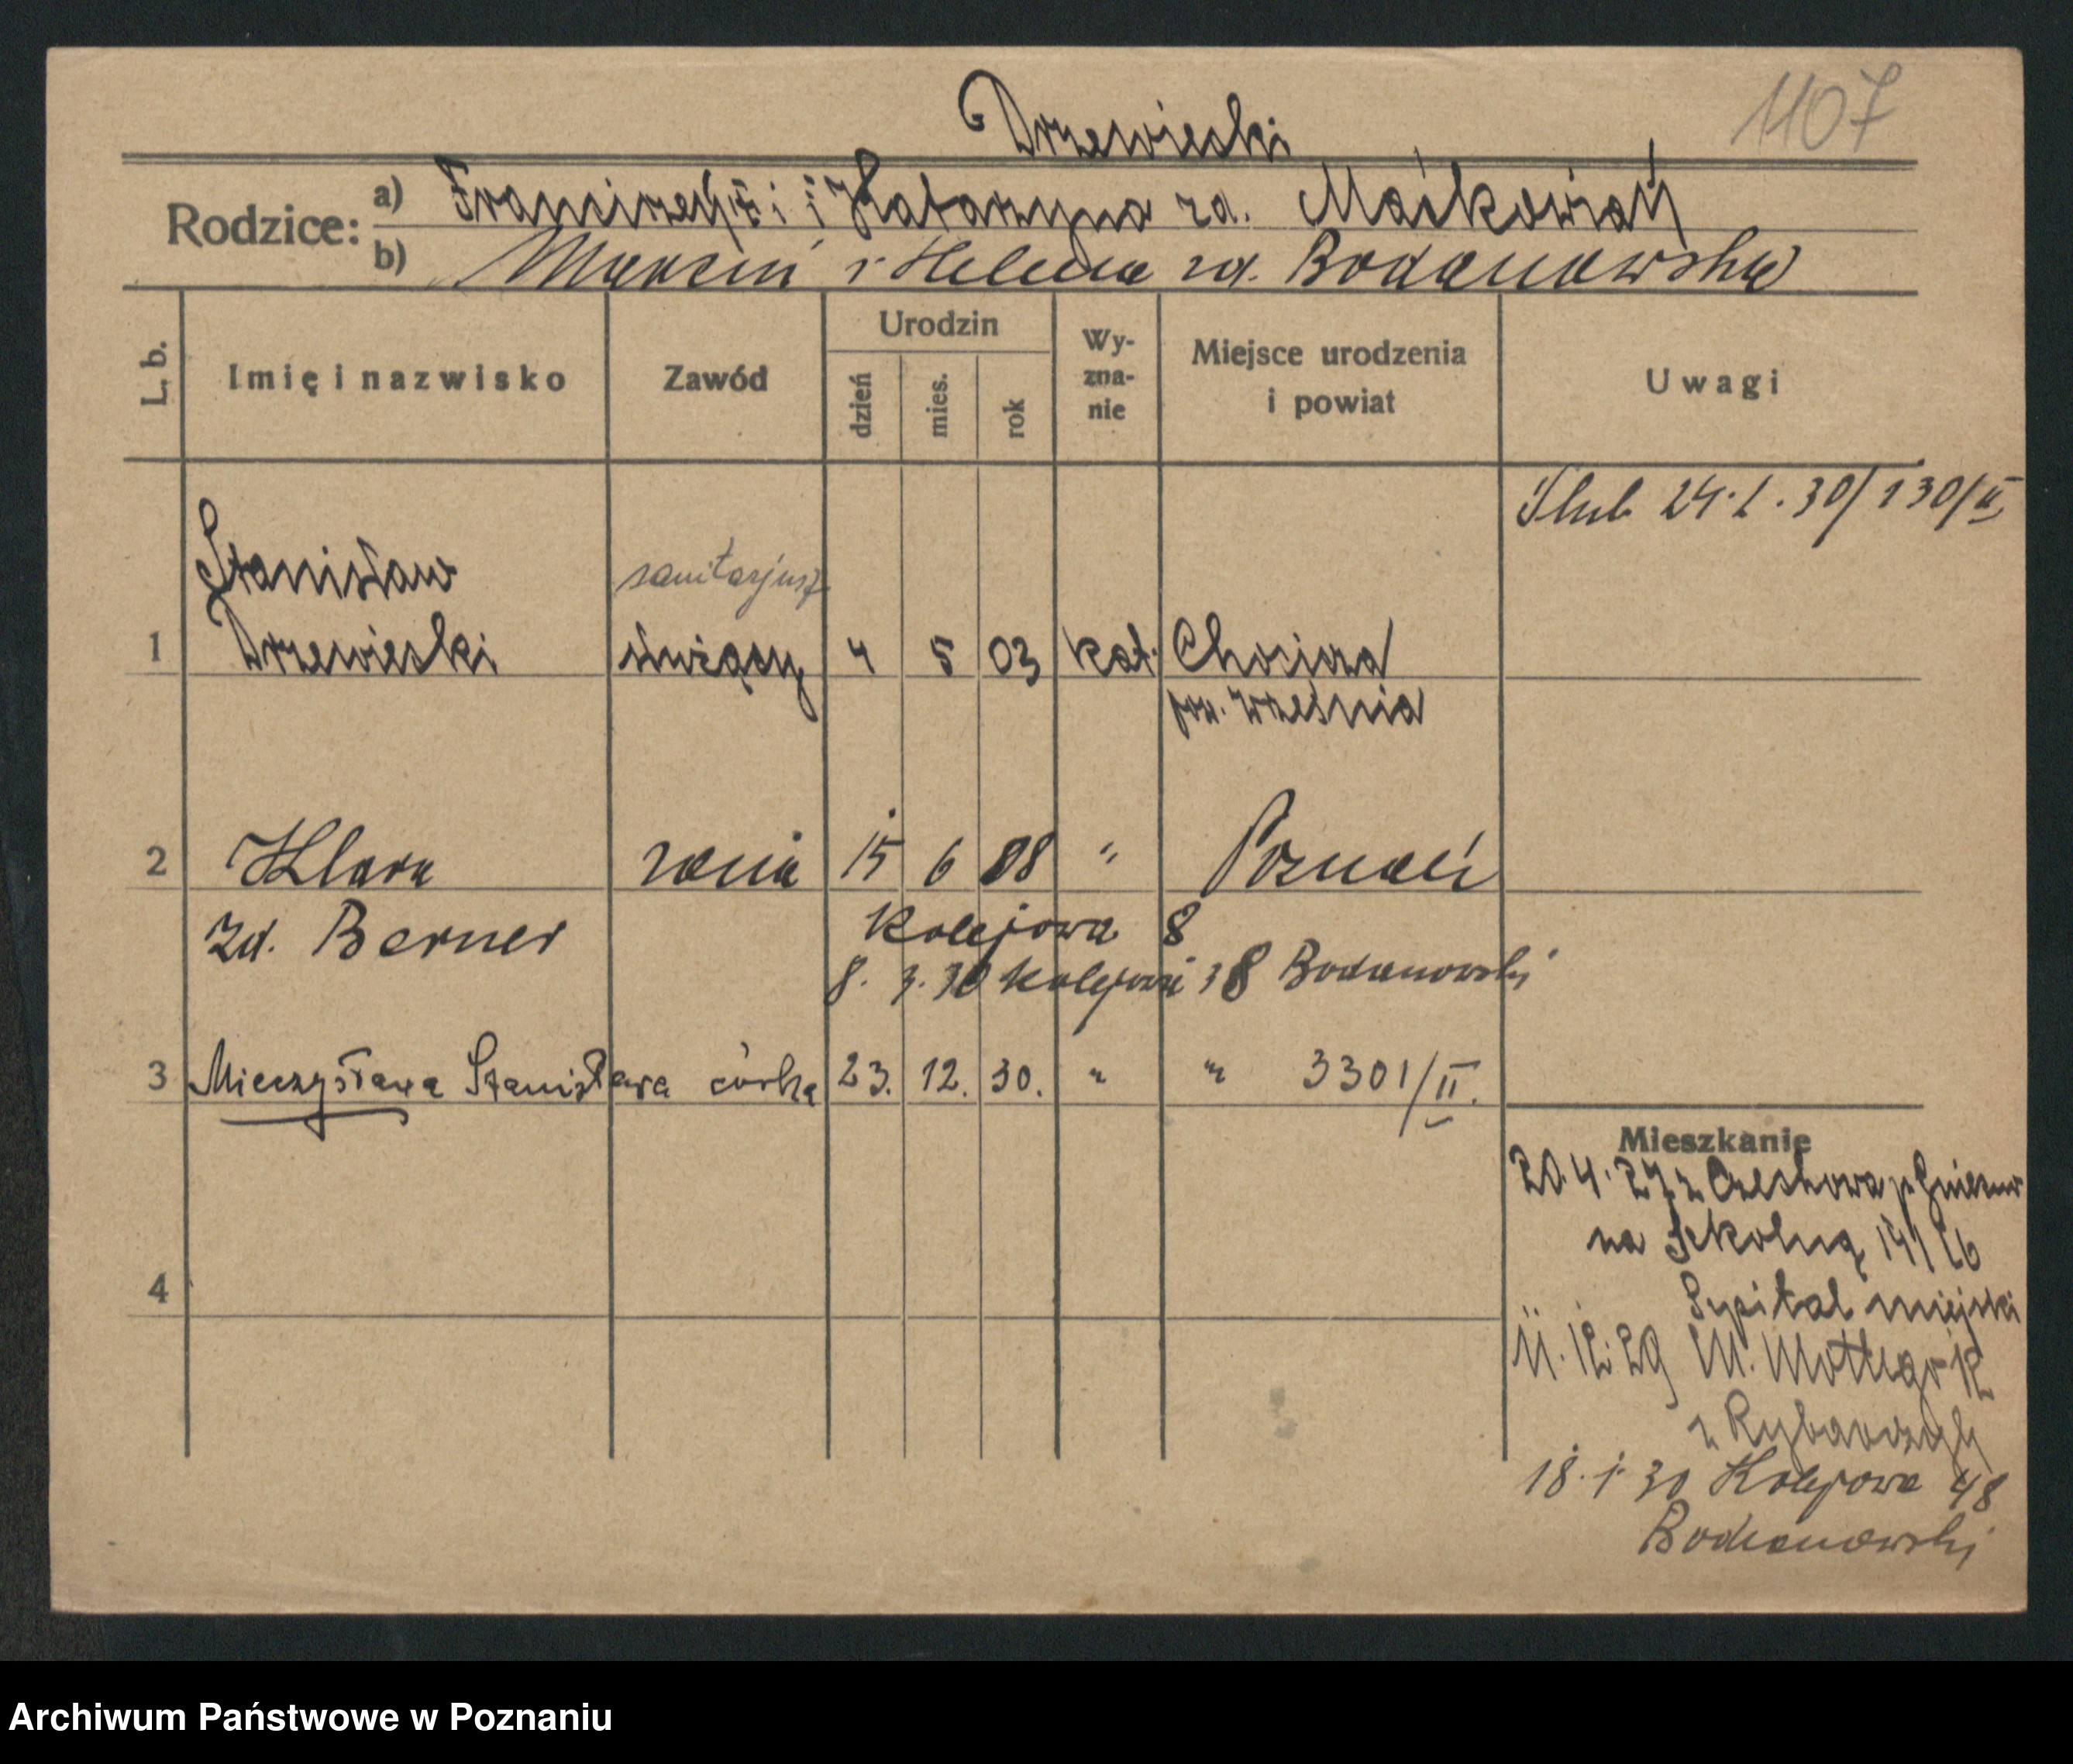 Drzewiecki
1107
Rodzice:
a) Franciszek i Katarzyna zd. Maćkowiak
b) Marcin i Helena zd. Bodanowska
L. b.
Imię i nazwisko
Zawód
Urodzin
dzień
mies.
rok
Wy-
zna-
nie
Miejsce urodzenia
i powiat
Uwagi
Ślub 24.2.30/130/II
Stanisław
sanitarjusz
1 Drzewiecki służący 4 5 03 kat. Chocicza
pow. Września
2 Klara żona 15 6 08 " Poznań
zd. Berner
Kolejowa 8
8. 3. 30 Kolejowa 38 Bodanowski
3 Mieczysława Stanisława córka 23. 12. 30. " " 3301/II.
Mieszkanie
20.4.27 z
na Szkolną 14/16
Szpital miejski
4
11.12.29 M. Mottego 12
z Rybarczyk
18.1.30 Kolejowa 48
Bodanowski
Archiwum Państwowe w Poznaniu